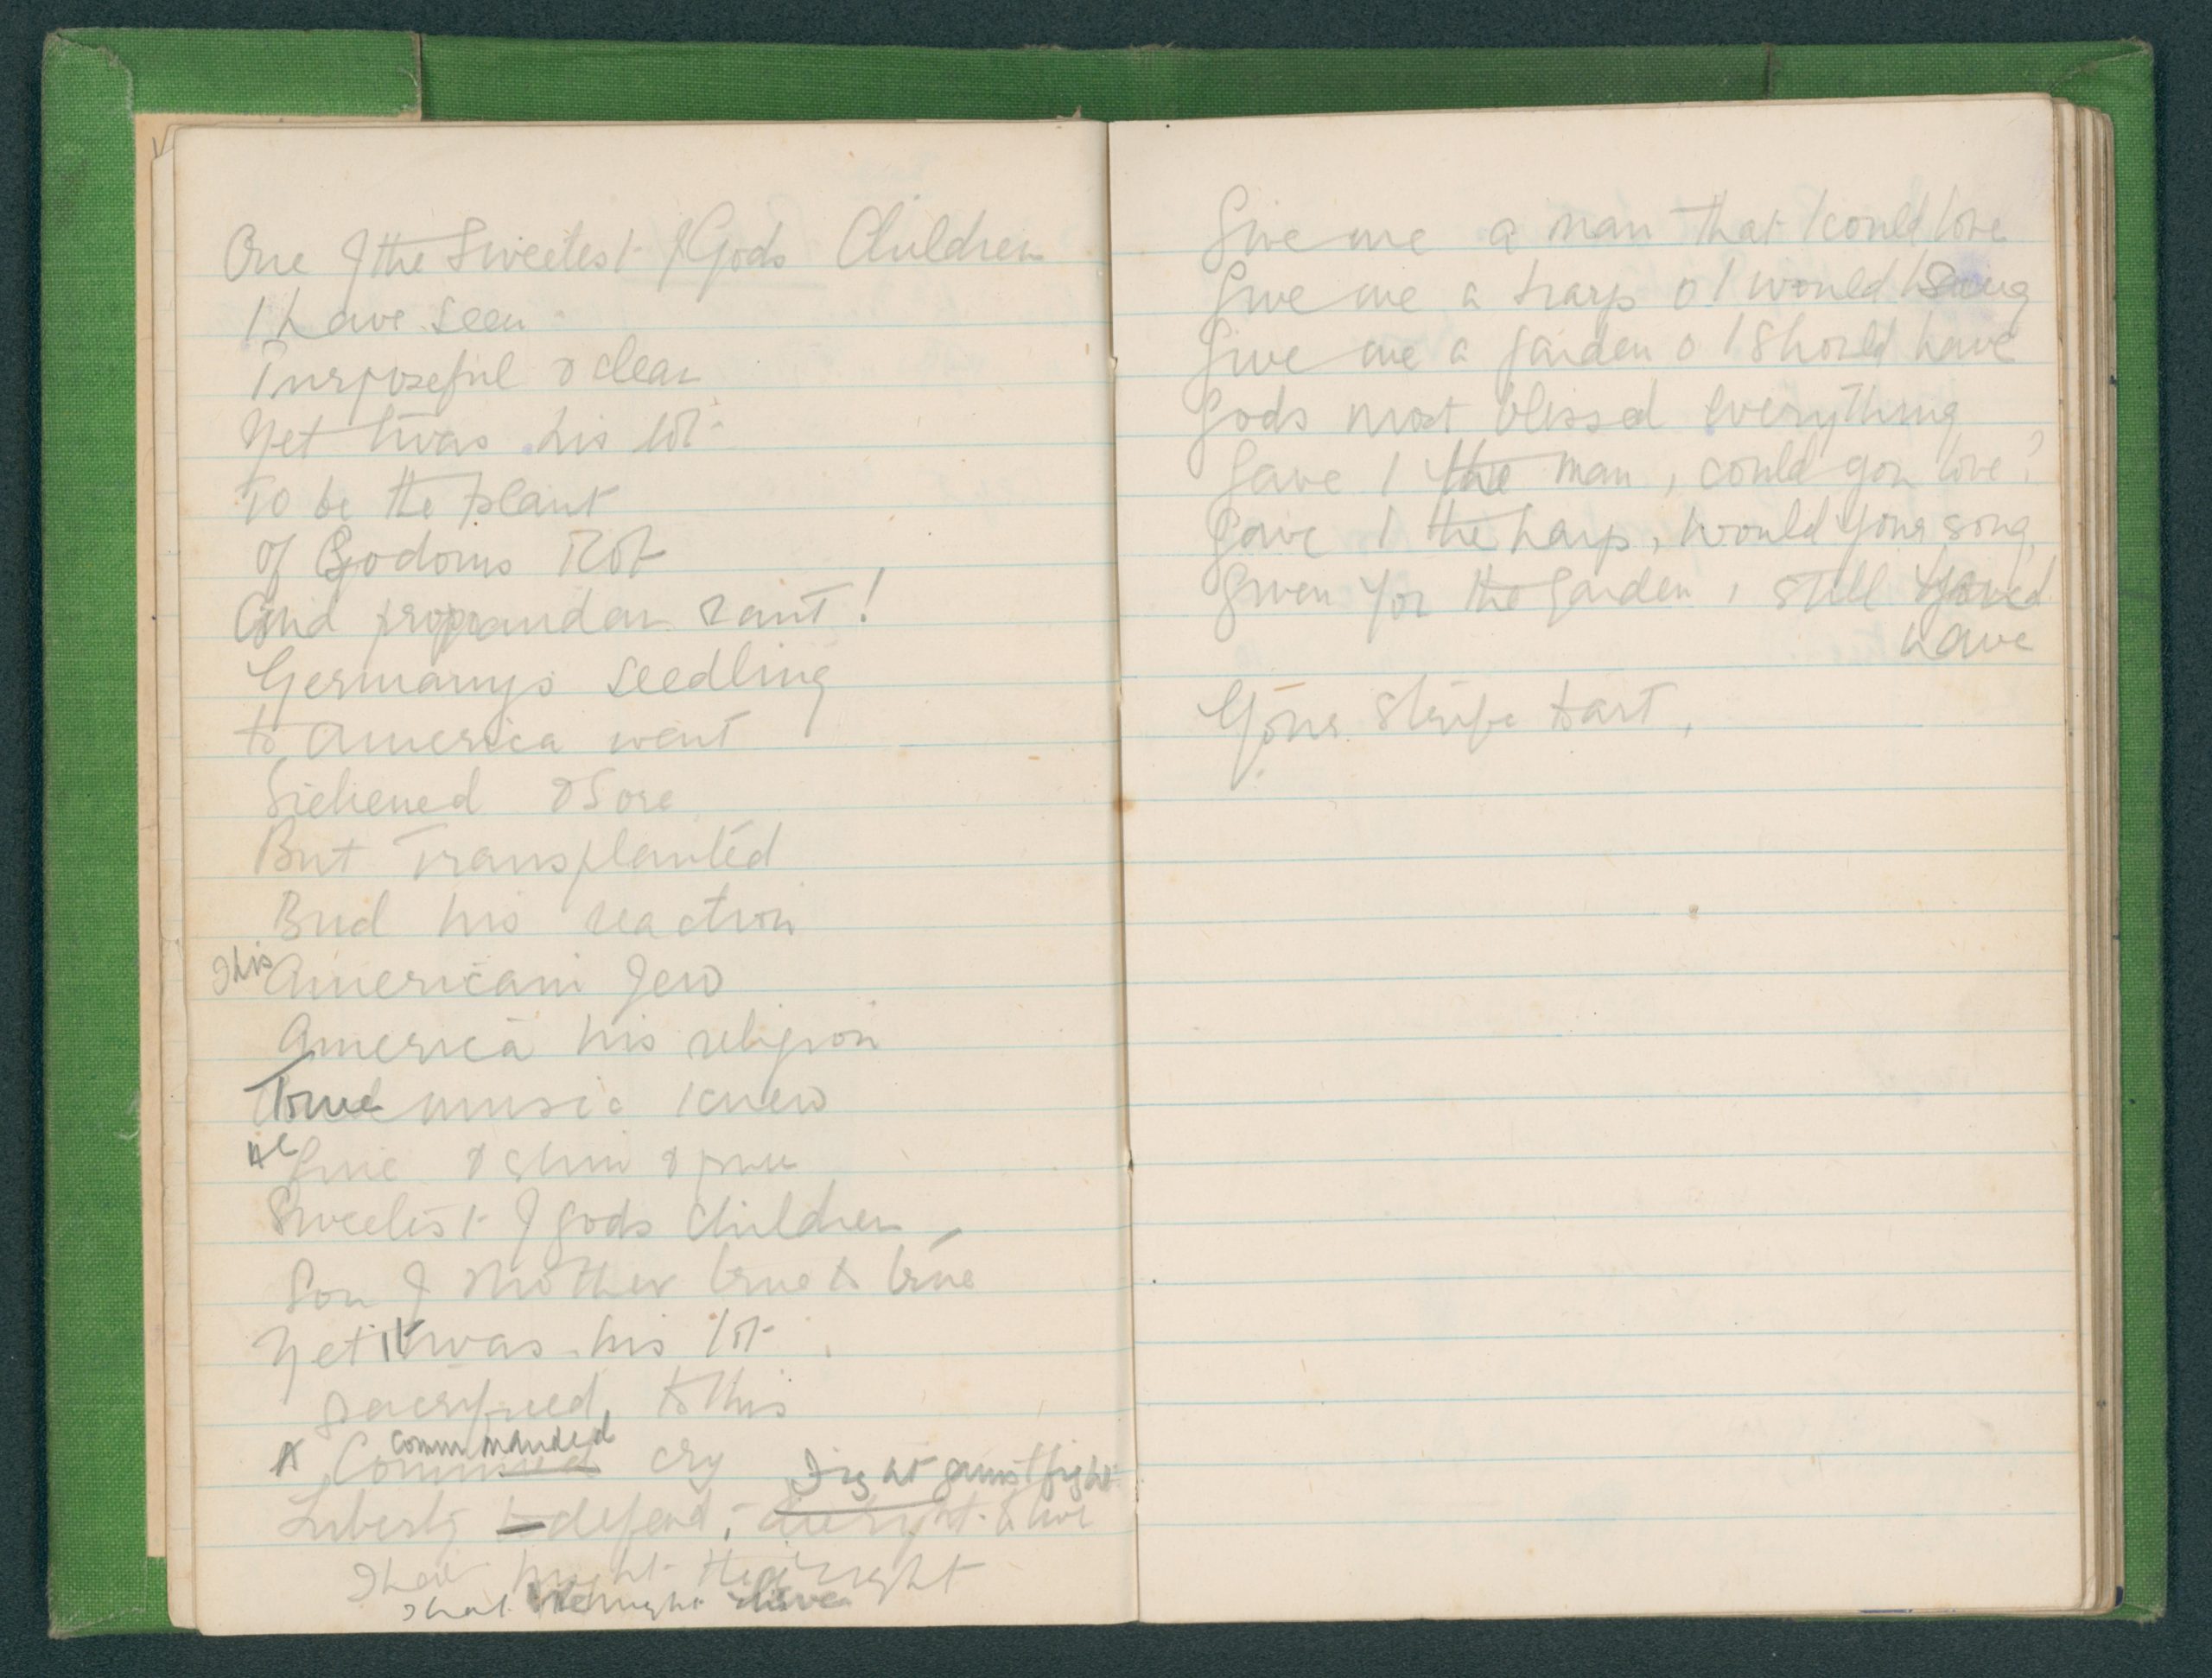 One of the Sweetest of Gods Children
I have seen
Purposeful & clear
Yet twas his lot
To be the plant
of Sodoms Rot
And propandar rant!
Germanys seedling
to America went
Sickened & Sore
But Transplanted
Bud his reaction
This American Jew
America his religion
True music knew
He & slim &
Sweetest of gods children
Son of Mother true to true
Yet it was his lot
Sacrificed, to this
A commanded cry
Fight gainst fight
Liberty to defend,
That might their right
That might
Give me a man that I could love
Give me a harp o I would Sing
Give me a garden o I should have
Gods most blissed everything
Gave I the man, could you love?
Gave I the harp, would your song,
Given you the garden, still
have
Your strife tart,